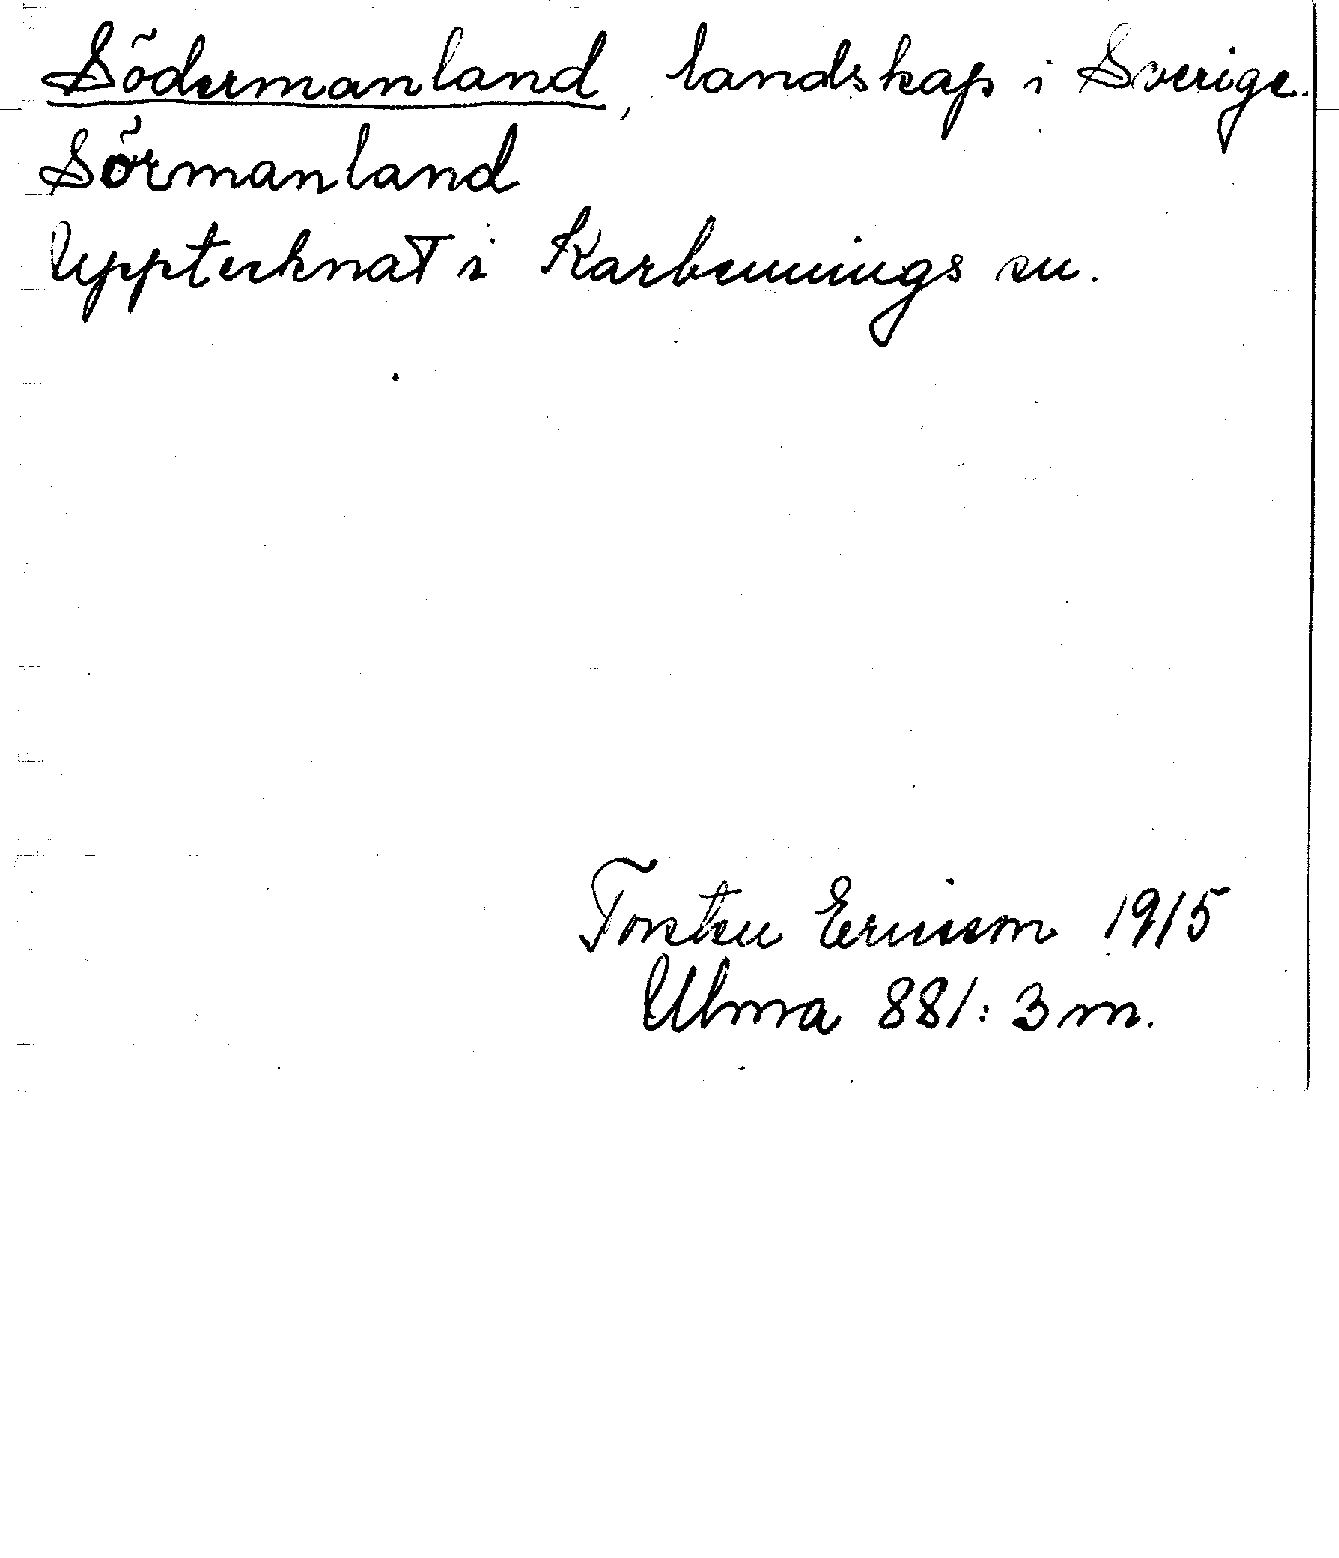 Södermanland, landskap i Sverige.
Sörmanland
Upptecknat i Karbennings sn.
Torsten Ericsson 1915
Ulma 881: 3 m.